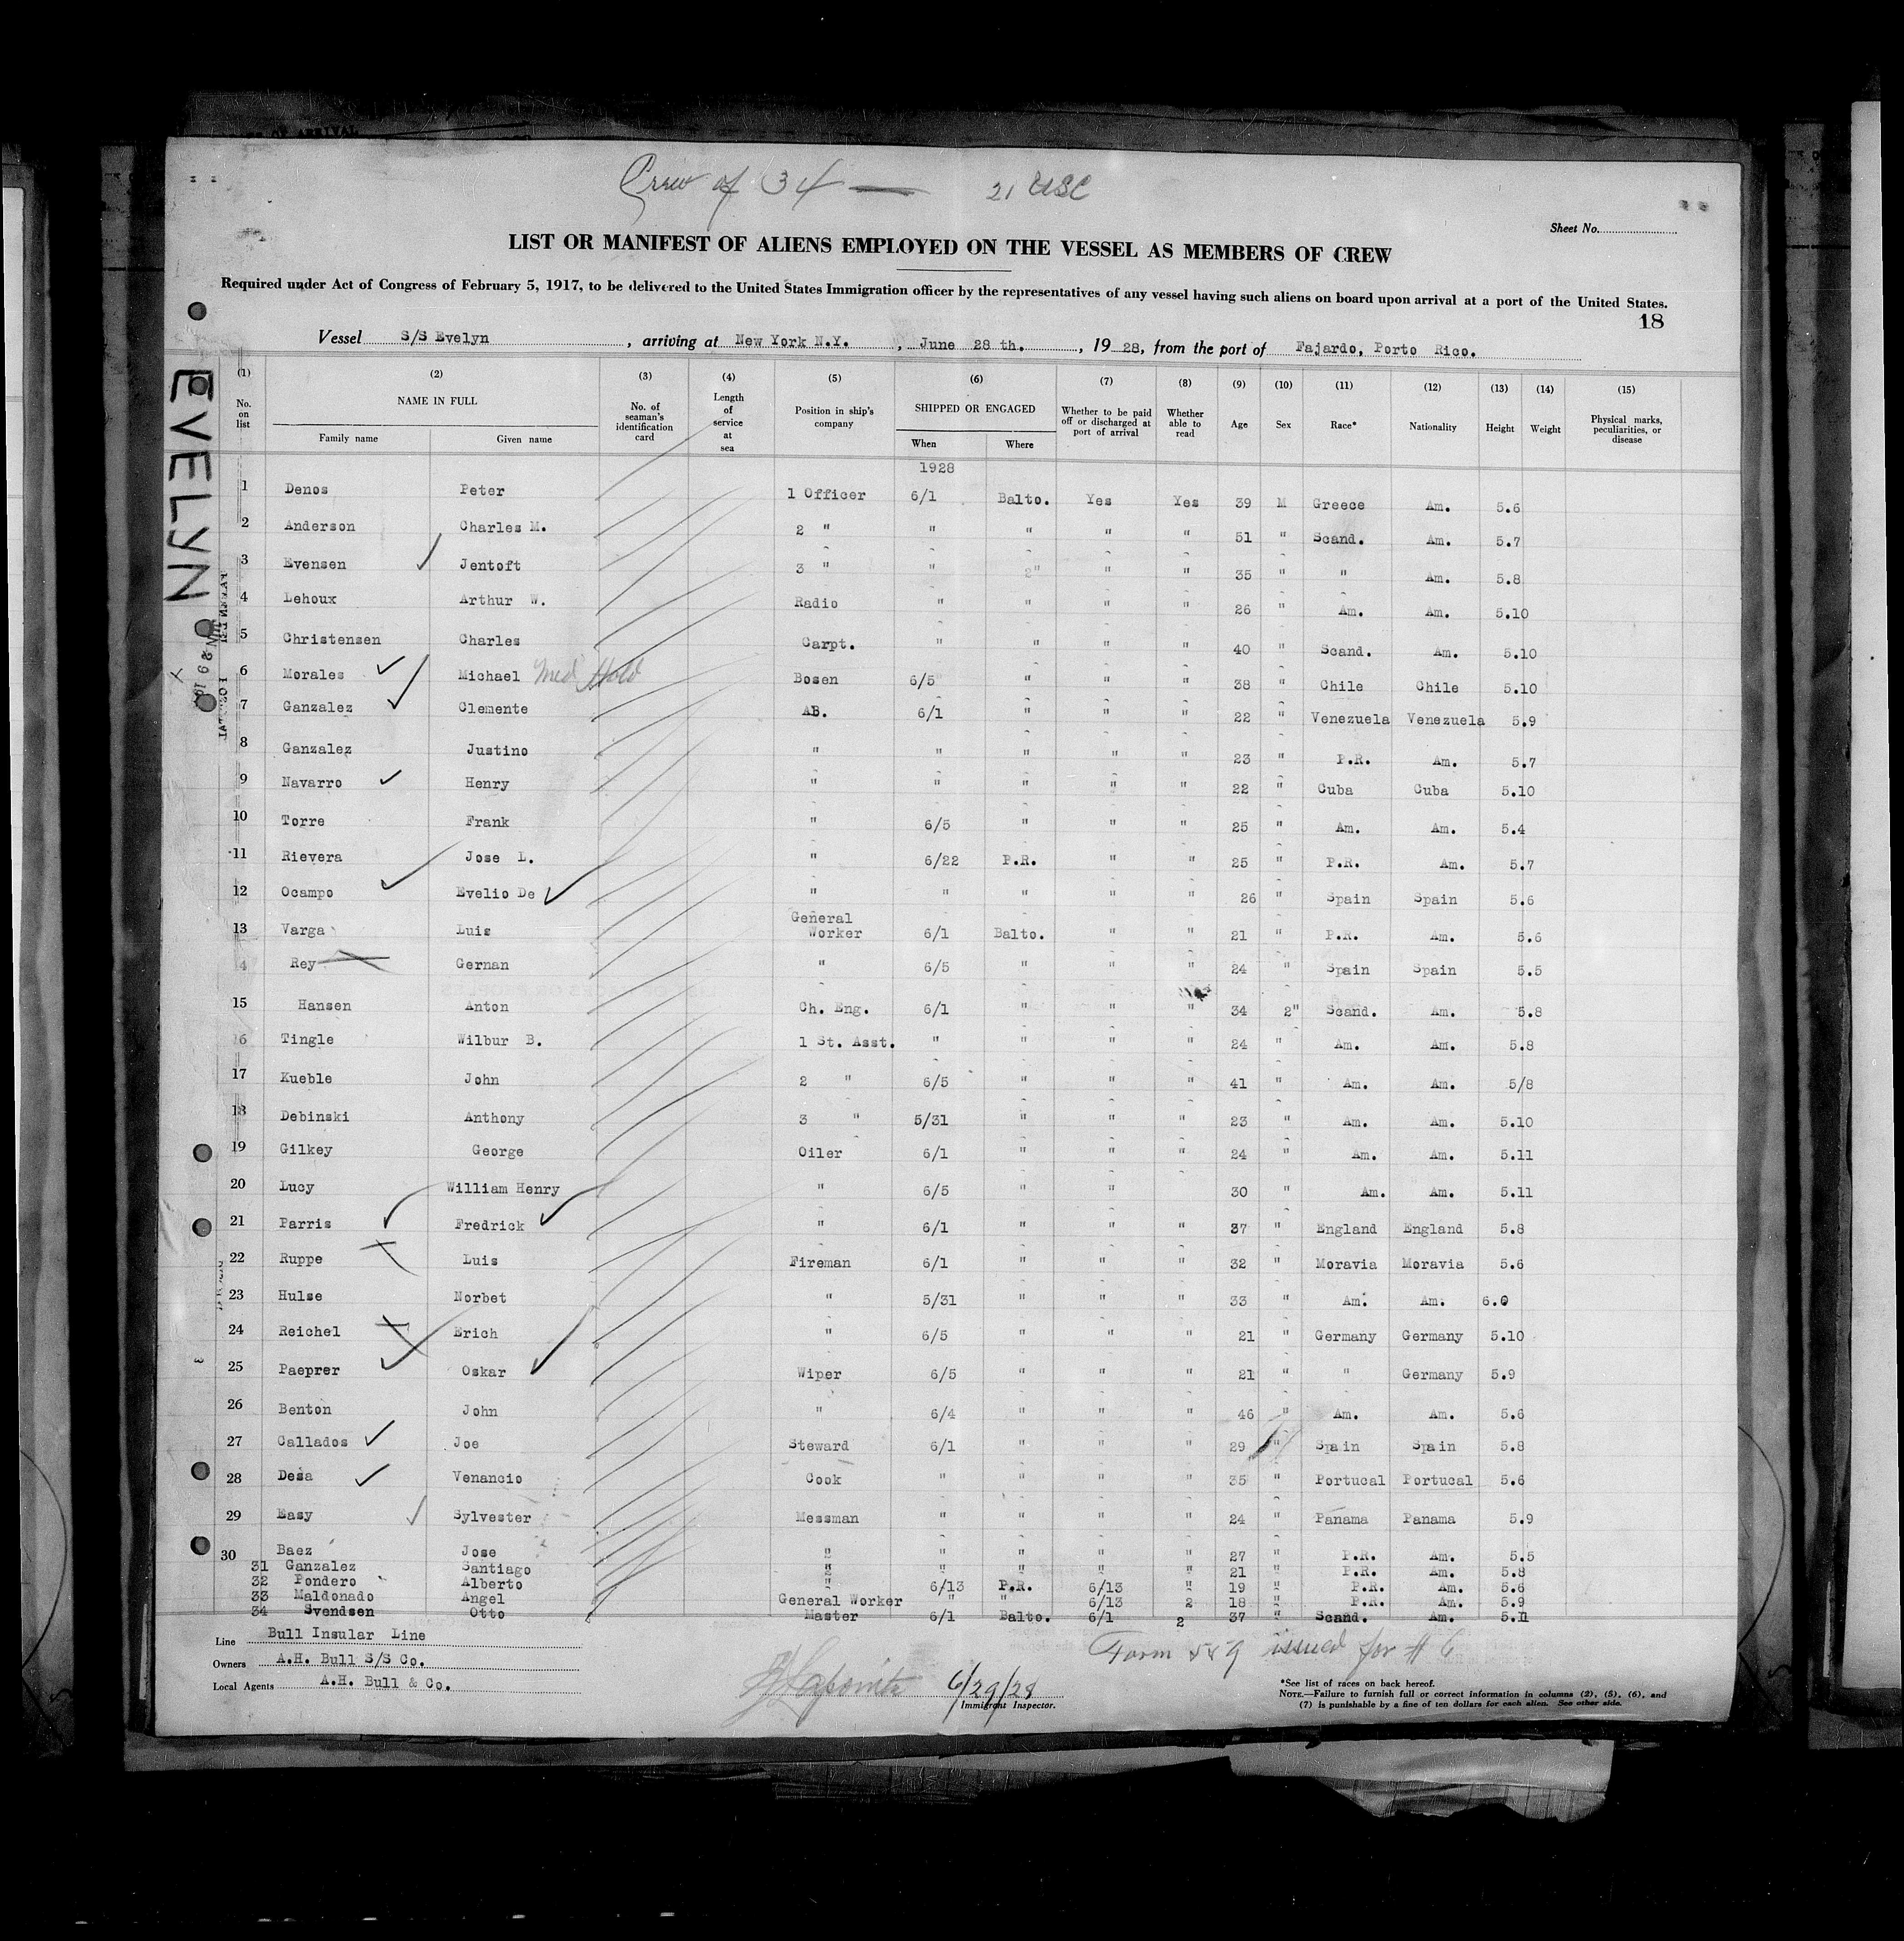 Crew of 34 — 21 USC
Sheet No.
LIST OR MANIFEST OF ALIENS EMPLOYED ON THE VESSEL AS MEMBERS OF CREW
Required under Act of Congress of February 5, 1917, to be delivered to the United States Immigration officer by the representatives of any vessel having such aliens on board upon arrival at a port of the United States.
18
Vessel S/S Evelyn, arriving at New York N.Y., June 28 th., 1928, from the port of Fajardo, Porto Rico.
EVELYN
(1) (2) (3) (4) (5) (6) (7) (8) (9) (10) (11) (12) (13) (14) (15)
No. on list NAME IN FULL Family name Given name No. of seaman's identification card Length of service at sea Position in ship's company SHIPPED OR ENGAGED When Where Whether to be paid off or discharged at port of arrival Whether able to read Age Sex Race* Nationality Height Weight Physical marks, peculiarities, or disease
1928
1 Denos Peter 1 Officer 6/1 Balto. Yes Yes 39 M Greece Am. 5.6
2 Anderson Charles M. 2 " " " " " 51 " Scand. Am. 5.7
3 Evensen Jentoft 3 " " 2" " " 35 " " Am. 5.8
4 Lehoux Arthur W. Radio " " " " 26 " Am. Am. 5.10
5 Christensen Charles Carpt. " " " " 40 " Scand. Am. 5.10
6 Morales Michael Med Hold Bosen 6/5 " " " 38 " Chile Chile 5.10
7 Ganzalez Clemente AB. 6/1 " " " 22 " Venezuela Venezuela 5.9
8 Ganzalez Justino " " " " " 23 " P.R. Am. 5.7
9 Navarro Henry " " " " " 22 " Cuba Cuba 5.10
10 Torre Frank " 6/5 " " " 25 " Am. Am. 5.4
11 Rievera Jose L. " 6/22 P.R. " " 25 " P.R. Am. 5.7
12 Ocampo Evelio De " " " " " 26 " Spain Spain 5.6
13 Varga Luis General Worker 6/1 Balto. " " 21 " P.R. Am. 5.6
4 Rey Gernan " 6/5 " " " 24 " Spain Spain 5.5
15 Hansen Anton Ch. Eng. 6/1 " " " 34 2" Scand. Am. 5.8
6 Tingle Wilbur B. 1 St. Asst. " " " " 24 " Am. Am. 5.8
17 Kueble John 2 " 6/5 " " " 41 " Am. Am. 5/8
18 Debinski Anthony 3 " 5/31 " " " 23 " Am. Am. 5.10
19 Gilkey George Oiler 6/1 " " " 24 " Am. Am. 5.11
20 Lucy William Henry " 6/5 " " 30 " Am. Am. 5.11
21 Parris Fredrick " 6/1 " " " 37 " England England 5.8
22 Ruppe Luis Fireman 6/1 " " " 32 " Moravia Moravia 5.6
23 Hulse Norbet " 5/31 " " " 33 " Am. Am. 6.0
24 Reichel Erich " 6/5 " " " 21 " Germany Germany 5.10
25 Paeprer Oskar Wiper 6/5 " " " 21 " " Germany 5.9
26 Benton John " 6/4 " " " 46 " Am. Am. 5.6
27 Callados Joe Steward 6/1 " " " 29 " Spain Spain 5.8
28 Desa Venancio Cook " " " " 35 " Portucal Portucal 5.6
29 Easy Sylvester Messman " " " " 24 " Panama Panama 5.9
30 Baez Jose " " " " " 27 " P.R. Am. 5.5
31 Ganzalez Santiago " " " " " 21 " P.R. Am. 5.8
32 Pondero Alberto " 6/13 P.R. 6/13 " 19 " P.R. Am. 5.6
33 Maldonado Angel General Worker " " 6/13 2 18 " P.R. Am. 5.9
34 Svendsen Otto Master 6/1 Balto. 6/1 2 37 " Scand. Am. 5.11
Line Bull Insular Line
Owners A.H. Bull S/S Co.
Local Agents A.H. Bull & Co.
Form 589 issued for # 6
6/29/28
Immigrant Inspector.
*See list of races on back hereof.
NOTE.—Failure to furnish full or correct information in columns (2), (5), (6), and
(7) is punishable by a fine of ten dollars for each alien. See other side.